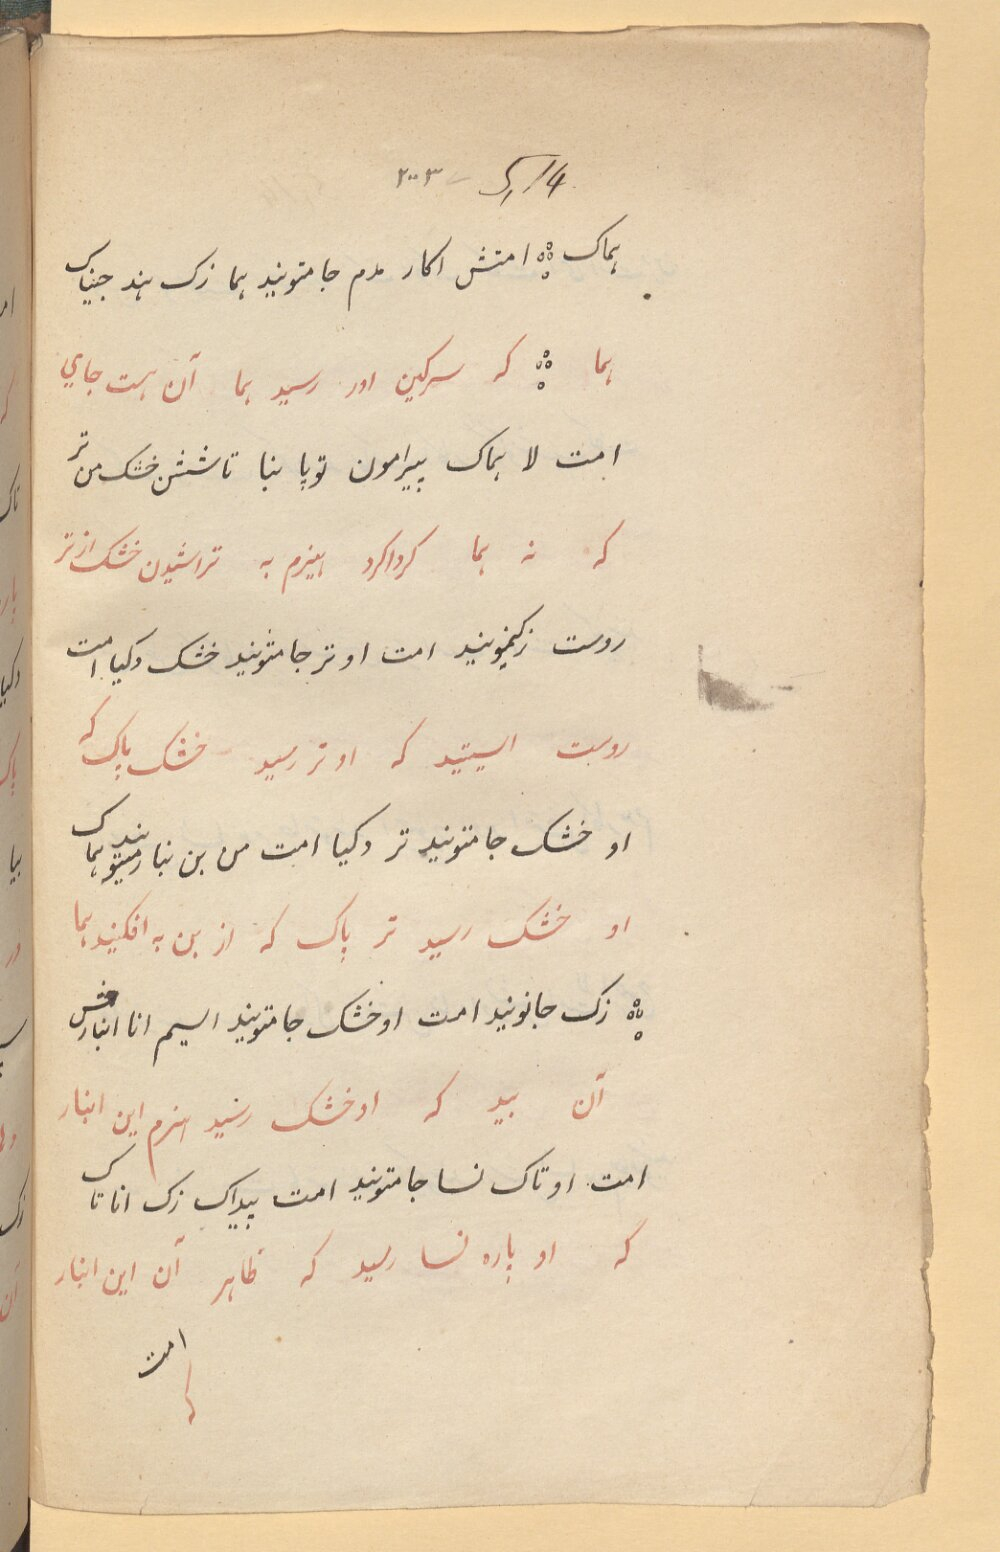 ۲۰۰۳
هماک ؞ امتش اکار مدم جامتونید هما زک هند جیناک
هما ؞ که سرکین اور رسید هما آن هست جاي
امت لا هماک پیرامون توپا بنا تاششن خشک من تر
که نه هما کرداکرد هیزم به تراشیدن خشک از تر
روست زکیمونید امت او تر جامتونید خشک دکیا امت
روست ایستید که او تر رسید خشک پاک که
او خشک جامتونید تر دکیا امت من بن بنا رمیتوند هماک
او خشک رسید تر پاک که از بن به افکنید هما
؞ زک جانونید امت او خشک جامتونید السیم انا انبار
آن بید که او خشک رسید ایزم این انبار
امت او تاک نسا جامتونید امت پیداک زک انا تاک
که او پاره نسا رسید که ظاهر آن این انبار
امت
که